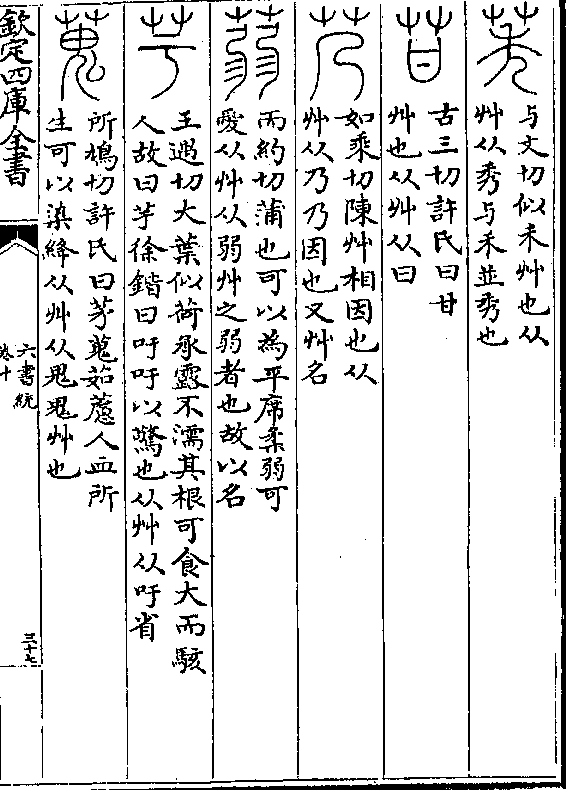 莠
与文切似禾艸也从
艸从秀与禾並秀也
苷
古三切許氏曰甘
艸也从艸从曰
艿
如乘切陳艸相因也从
艸从乃乃因也又艸名
蒻
而約切蒲也可以為平席柔弱可
愛从艸从弱艸之弱者也故以名
芌
王遇切大葉似荷承露不濡其根可食大而駭
人故曰芋徐鍇曰吁吁以驚也从艸从吁省
蒐
所鳩切許氏曰茅蒐茹藘人血所
生可以染絳从艸从鬼鬼艸也
欽定四庫全書
六書統
卷十
三十七